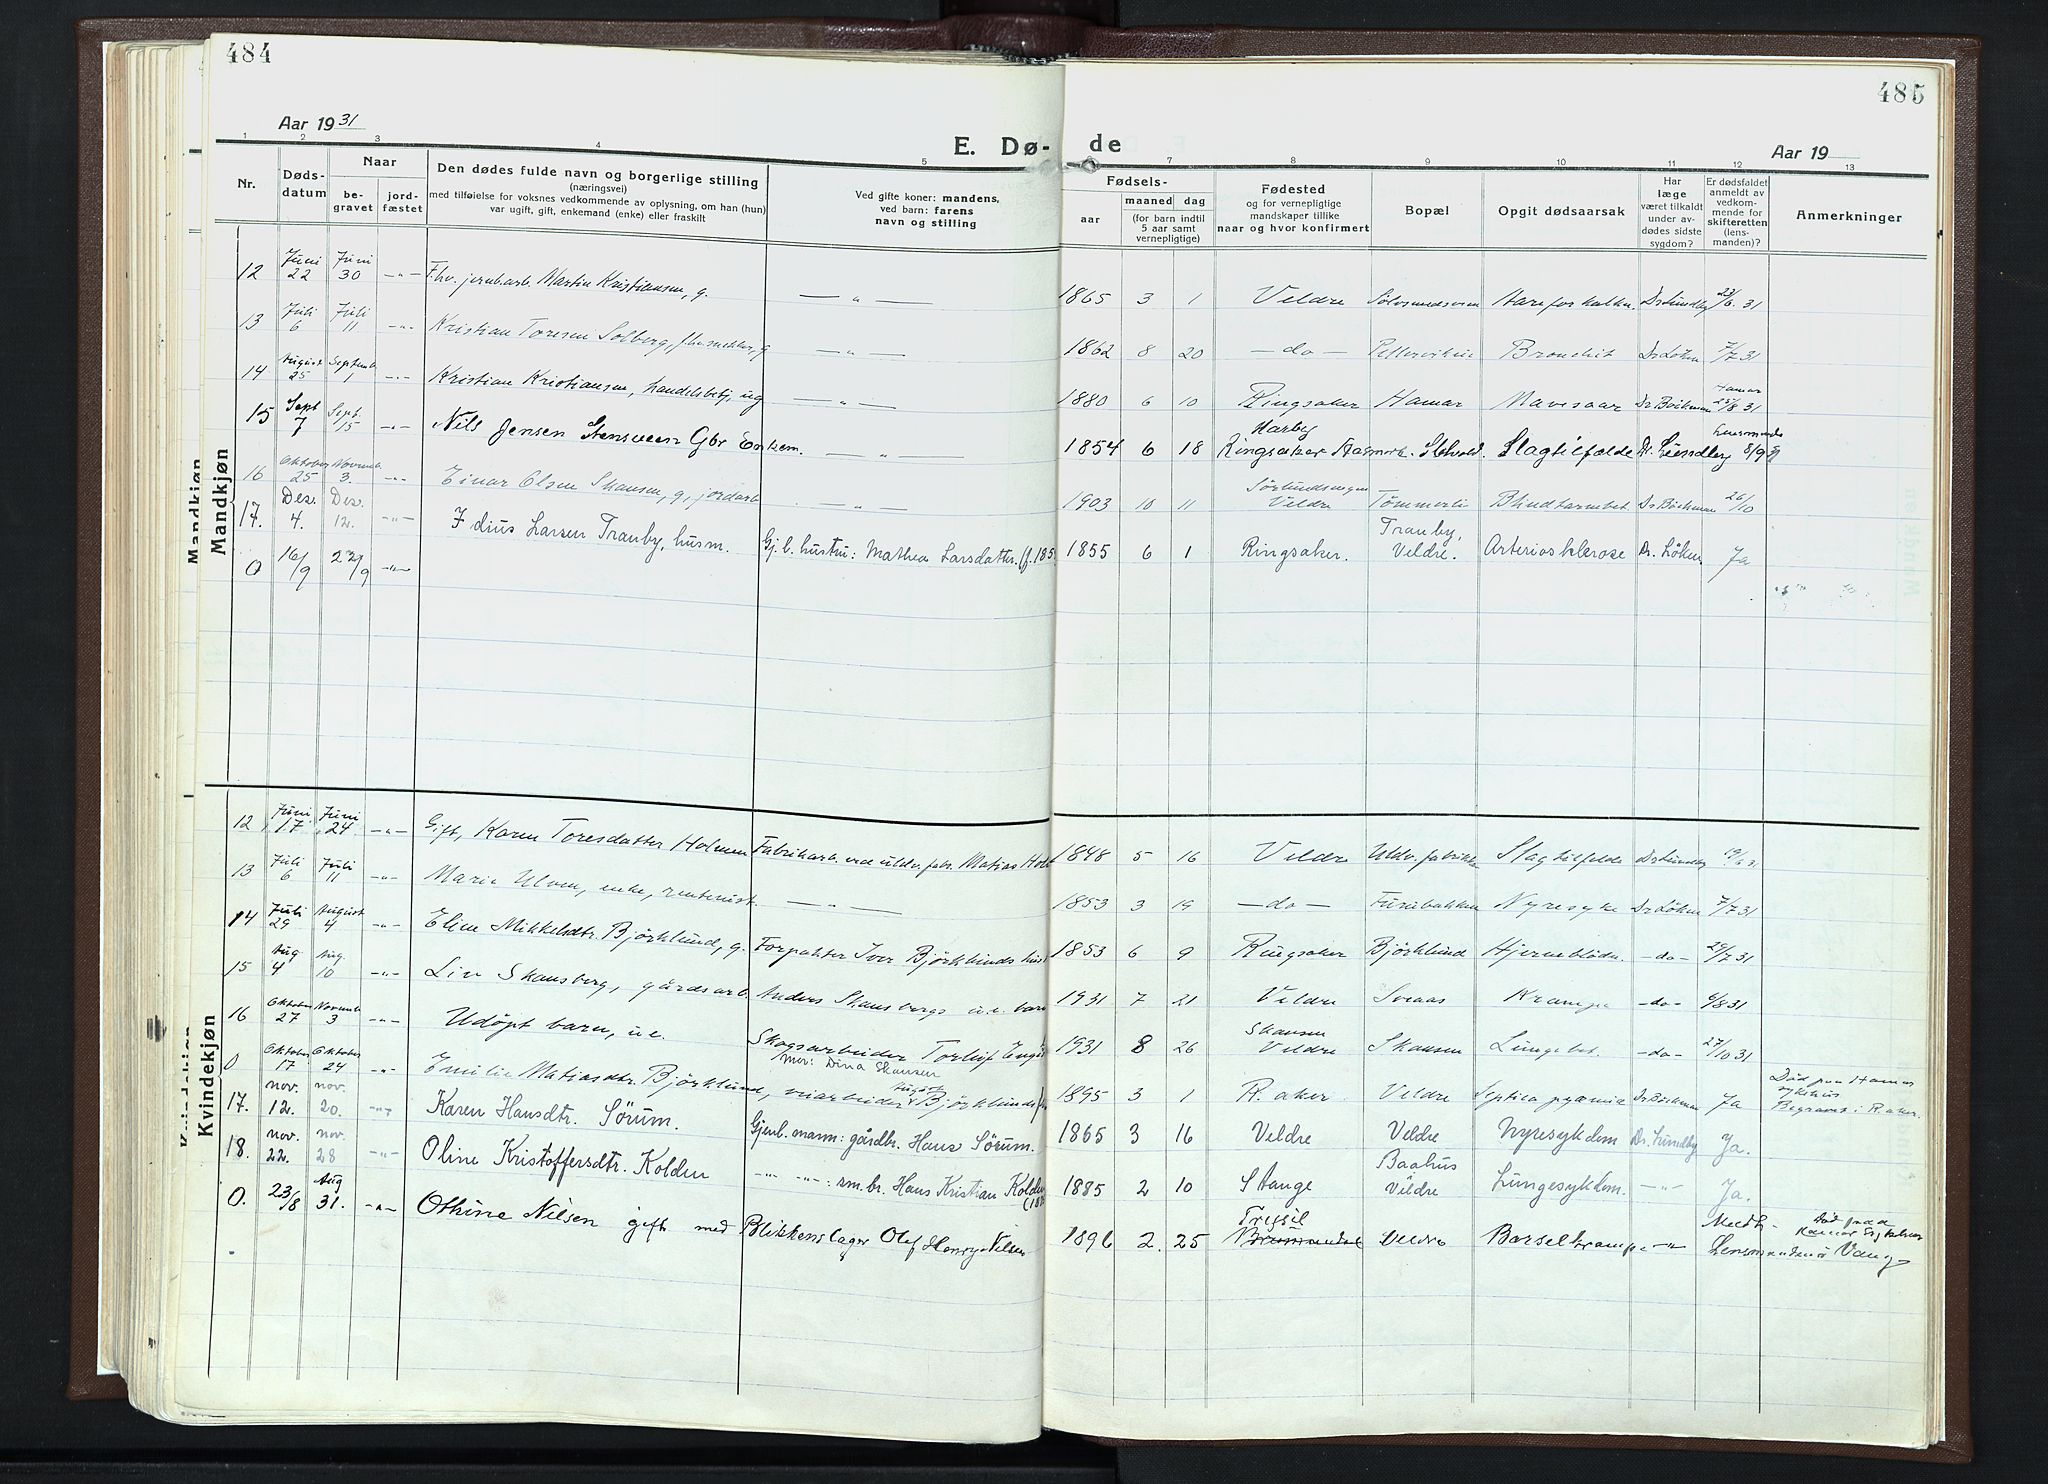 484
485
Aar 1931
E. Dø-
de
Aar 19
1 2 3 4 5 7 8 9 10 11 12 13
Nr.
Døds-
datum
Naar
be-
gravet
jord-
fæstet
Den dødes fulde navn og borgerlige stilling
(næringsvei)
med tilføielse for voksnes vedkommende av oplysning, om han (hun)
var ugift, gift, enkemand (enke) eller fraskilt
Ved gifte koner: mandens,
ved barn: farens
navn og stilling
Fødsels-
aar
maaned dag
(for barn indtil
5 aar samt
vernepligtige)
Fødested
og for vernepligtige
mandskaper tillike
naar og hvor konfirmert
Bopæl
Opgit dødsaarsak
Har
læge
været tilkaldt
under av-
dødes sidste
sygdom?
Er dødsfaldet
anmeldt av
vedkom-
mende for
skifteretten
(lens-
manden)?
Anmerkninger
Mandkjøn
Mandkjøn
12 Juni 22 Juni 30 —"— F.hv. jernb.arb. Martin Kristiansen, g. —"— 1865 3 1 Veldre Aareforkalkn. Dr Lundby 23/6 31
13 Juli 6 Juli 11 —"— Kristian Toresen Solberg, g —"— 1862 8 20 —do— Bronchit Dr Løken 7/7 31
14 August 25 Septemb. 1 —"— Kristian Kristiansen, handelsbetj, ug —"— 1880 6 10 Ringsaker Hamar Mavesaar Dr Böckman Hamar 25/8 31
15 Sept 7 Sept. 15 —"— Nils Jensen Stensveen Gbr Enkem. —"— 1854 6 18 Harby Ringsaker Slagtilfælde Dr. Lundby 8/9 31
16 Oktober 25 Novemb. 3. —"— Einar Olsen Skansen, g, jordarb —"— 1903 10 11 Veldre Tømmerli Blindtarmbet Dr Böckman 26/10
17. Des. 4. Des. 12. —"— Idius Larsen Tranby, husm. Gj.l. hustru: Mathea Larsdatter (f. 185 1855 6 1 Ringsaker. Tranby, Veldre. Arteriosklerose Dr. Løken Ja
0 16/9 22/9 —"—
Kvindekjøn
Kvindekjøn
12 Juni 17 Juni 24 —"— Gift, Karen Toresdatter Holmen Fabrikarb. ved uldv.fabr. Matias Hol 1848 5 16 Veldre Uldv.fabrikken Slagtilfælde Dr Lundby 19/6 31
13 Juli 6 Juli 11 —"— Marie Ulven, enke, renterist. —"— 1853 3 19 —do— Furubakken Nyresyke Dr Løken 7/7 31
14 Juli 29 August 4 —"— Eline Mikkelsdtr. Björklund, g. Forpakter Iver Björklunds hust 1853 6 9 Ringsaker Björklund Hjerneblødn. —do— 29/7 31
15 Aug 4 Aug. 10 —"— Liv Skansberg, gårdsarb. Anders Skansbergs u.e. barn 1931 7 21 Veldre Sveaas Krampe —do— 6/8 31
16 Oktober 27 Novemb 3 —"— Udöpt barn, u e. Skogsarbeider Torleif Eng
mor: Dina Skansen 1931 8 26 Skansen Veldre Skansen Lungebet. —do— 27/10 31
0 Oktober 17 Oktober 24 —"— Emilie Matiasdtr. Björklund, veiarbeider August Björklunds 1895 3 1 R.aker Veldre Septica pyæmia Dr Böckman Ja Död paa Hamar sykehus Begravet i R.aker.
17. nov. 12. nov. 20. —"— Karen Hansdtr. Sörum. Gjenl. mann: gårdbr. Hans Sörum. 1865 3 16 Veldre Veldre Nyresykdom Dr. Lundby Ja.
18. nov. 22. nov. 28 —"— Oline Kristoffersdtr. Kolden —"— —"—: sm.br. Hans Kristian Kolden 1885 2 10 Stange Baahus Veldre Lungesykdom. —"— Ja.
0. 23/8 Aug 31. —"— Othine Nilsen gift med Blikkenslager Olef Henry Nilsen 1896 2. 25 Trysil Brumunddal Veldre Barselkrampe —"— Meldt Lensmanden i Vang Död paa Hamar Sykehus